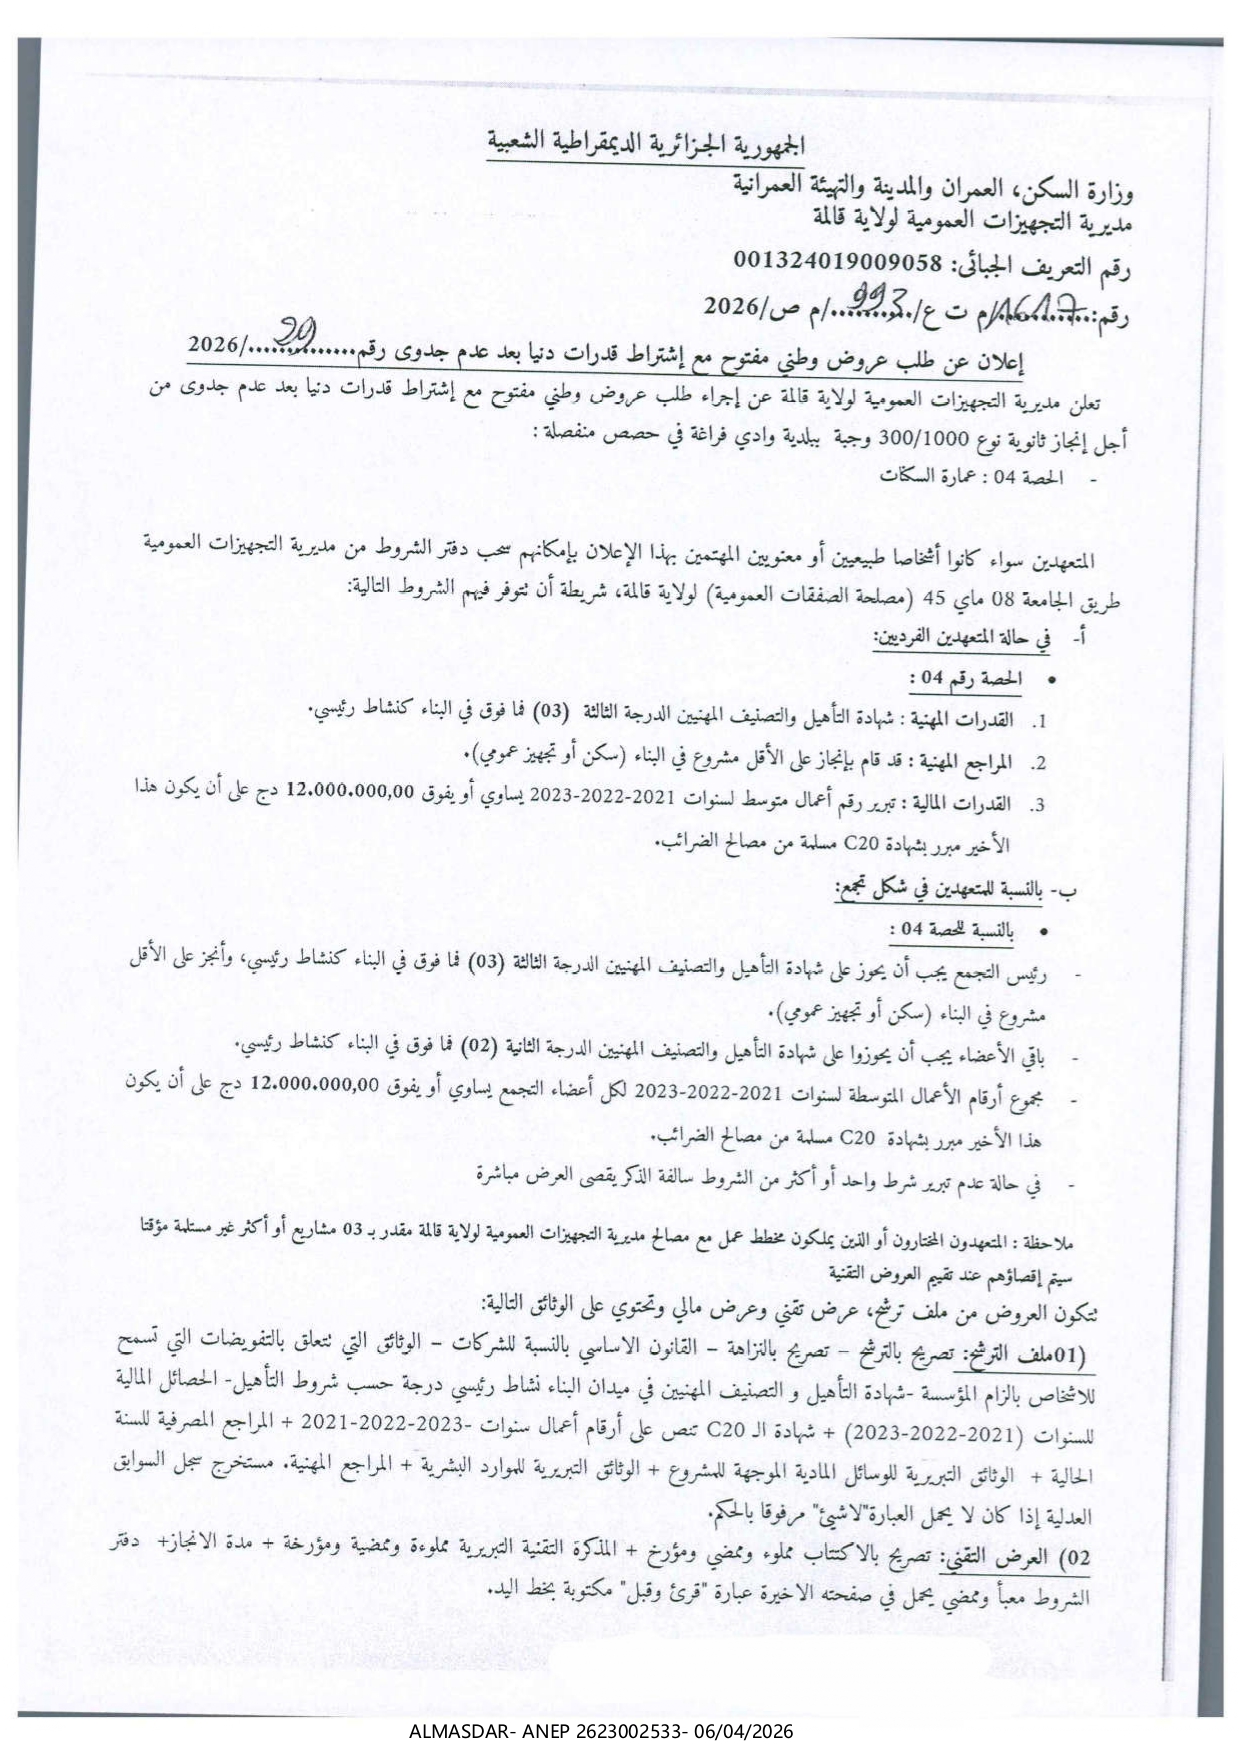 الجمهورية الجزائرية الديمقراطية الشعبية
وزارة السكن، العمران والمدينة والتهيئة العمرانية
مديرية التجهيزات العمومية لولاية قالمة
رقم التعريف الجبائي: 001324019009058
رقم:...1617.../م ت ع/...993.../م ص/2026
إعلان عن طلب عروض وطني مفتوح مع إشتراط قدرات دنيا بعد عدم جدوى رقم...29.../2026
تعلن مديرية التجهيزات العمومية لولاية قالمة عن إجراء طلب عروض وطني مفتوح مع إشتراط قدرات دنيا بعد عدم جدوى من
أجل إنجاز ثانوية نوع 300/1000 وجبة ببلدية وادي فراغة في حصص منفصلة :
- الحصة 04 : عمارة السكنات
المتعهدين سواء كانوا أشخاصا طبيعيين أو معنويين المهتمين بهذا الإعلان بإمكانهم سحب دفتر الشروط من مديرية التجهيزات العمومية
طريق الجامعة 08 ماي 45 (مصلحة الصفقات العمومية) لولاية قالمة، شريطة أن تتوفر فيهم الشروط التالية:
أ- في حالة المتعهدين الفرديين:
• الحصة رقم 04 :
1. القدرات المهنية : شهادة التأهيل والتصنيف المهنيين الدرجة الثالثة (03) فما فوق في البناء كنشاط رئيسي.
2. المراجع المهنية : قد قام بإنجاز على الأقل مشروع في البناء (سكن أو تجهيز عمومي).
3. القدرات المالية : تبرير رقم أعمال متوسط لسنوات 2021-2022-2023 يساوي أو يفوق 12.000.000,00 دج على أن يكون هذا
الأخير مبرر بشهادة C20 مسلمة من مصالح الضرائب.
ب- بالنسبة للمتعهدين في شكل تجمع:
• بالنسبة للحصة 04 :
- رئيس التجمع يجب أن يحوز على شهادة التأهيل والتصنيف المهنيين الدرجة الثالثة (03) فما فوق في البناء كنشاط رئيسي، وأنجز على الأقل
مشروع في البناء (سكن أو تجهيز عمومي).
- باقي الأعضاء يجب أن يحوزوا على شهادة التأهيل والتصنيف المهنيين الدرجة الثانية (02) فما فوق في البناء كنشاط رئيسي.
- مجموع أرقام الأعمال المتوسطة لسنوات 2021-2022-2023 لكل أعضاء التجمع يساوي أو يفوق 12.000.000,00 دج على أن يكون
هذا الأخير مبرر بشهادة C20 مسلمة من مصالح الضرائب.
- في حالة عدم تبرير شرط واحد أو أكثر من الشروط سالفة الذكر يقصى العرض مباشرة
ملاحظة : المتعهدون المختارون أو الذين يملكون مخطط عمل مع مصالح مديرية التجهيزات العمومية لولاية قالمة مقدر بـ 03 مشاريع أو أكثر غير مستلمة مؤقتا
سيتم إقصاؤهم عند تقييم العروض التقنية
تتكون العروض من ملف ترشح، عرض تقني وعرض مالي وتحتوي على الوثائق التالية:
01)ملف الترشح: تصريح بالترشح – تصريح بالنزاهة – القانون الاساسي بالنسبة للشركات – الوثائق التي تتعلق بالتفويضات التي تسمح
للاشخاص بالزام المؤسسة -شهادة التأهيل و التصنيف المهنيين في ميدان البناء نشاط رئيسي درجة حسب شروط التأهيل- الحصائل المالية
للسنوات (2021-2022-2023) + شهادة الـ C20 تنص على أرقام أعمال سنوات -2023-2022-2021 + المراجع المصرفية للسنة
الحالية + الوثائق التبريرية للوسائل المادية الموجهة للمشروع + الوثائق التبريرية للموارد البشرية + المراجع المهنية. مستخرج سجل السوابق
العدلية إذا كان لا يحمل العبارة"لاشيئ" مرفوقا بالحكم.
02) العرض التقني: تصريح بالاكتتاب مملوء وممضي ومؤرخ + المذكرة التقنية التبريرية مملوءة وممضية ومؤرخة + مدة الانجاز+ دفتر
الشروط معبأ وممضي يحمل في صفحته الاخيرة عبارة "قرئ وقبل" مكتوبة بخط اليد.
ALMASDAR- ANEP 2623002533- 06/04/2026